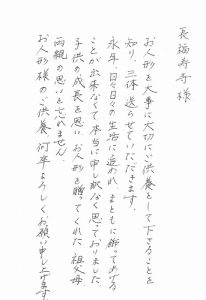 長福寿寺様
お人形を大事に大切にご供養をして下さることを
知り、三体送らせていただきます。
永年、日々日々の生活に追われ、まともに飾ってあげる
ことが出来なくて本当に申し訳なく思っておりました。
子供の成長を思い、お人形を贈ってくれた祖父母
両親の思いを忘れません。
お人形様のご供養、何卒よろしくお願い申し上げます。